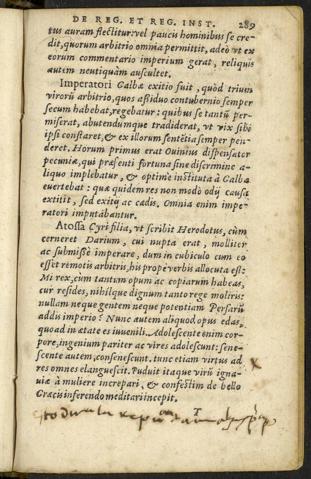 DE REG. ET REG. INST. 289
tus auram flectitur: vel paucis hominibus se cre-
dit, quorum arbitrio omnia permittit, adeò vt ex
eorum commentario imperium gerat, reliquis
autem neutiquàm auscultet.
Imperatori Galbæ exitio fuit, quòd trium
virorũ arbitrio, quos aßiduo contubernio semper
secum habebat, regebatur: quibus se tantũ per-
miserat, abutendumque tradiderat, vt vix sibi
ipsi constaret, & ex illorum sentẽtia semper pen-
deret. Horum primus erat Ouinius dispensator
pecuniæ, qui præsenti fortuna sine discrimine a-
liquo implebatur, & optimè instituta à Galba
euertebat: quæ quidem res non modò odij causa
extitit, sed exitij ac cadis. Omnia enim impe-
ratori imputabantur.
Atossa Cyri filia, vt scribit Herodotus, cùm
cerneret Darium, cui nupta erat, molliter
ac submißè imperare, dum in cubiculo cum eo
esset remotis arbitris, his propè verbis allocuta est:
Mi rex, cum tantum opum ac copiarum habeas,
cur resides, nihilque dignum tanto rege moliris:
nullam neque gentem neque potentiam Persarũ
addis imperio? Nunc autem aliquod opus edas,
quoad in ætate es iuuenili. Adolescente enim cor-
pore, ingenium pariter ac vires adolescunt: sene-
scente autem, consenescunt. tunc etiam virtus ad
res omnes elanguescit. Puduit itaque virũ igna-
uiæ à muliere increpari, & confestim de bello
Græcis inferendo meditari incepit.
T